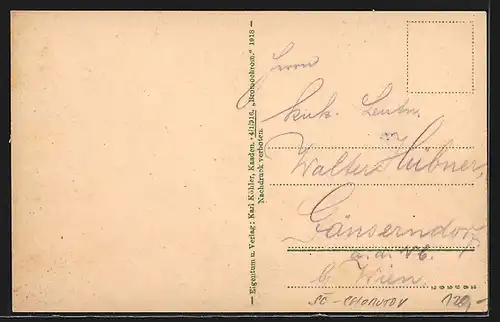 — Eigentum u. Verlag: Karl Köhler, Kaaden. 4/1916. „Bromochrom.“ 1918 —
Nachdruck verboten.
Herrn
kuk. Leutn.
Walter Hübner,
Gänserndorf
b. Wien
120,-